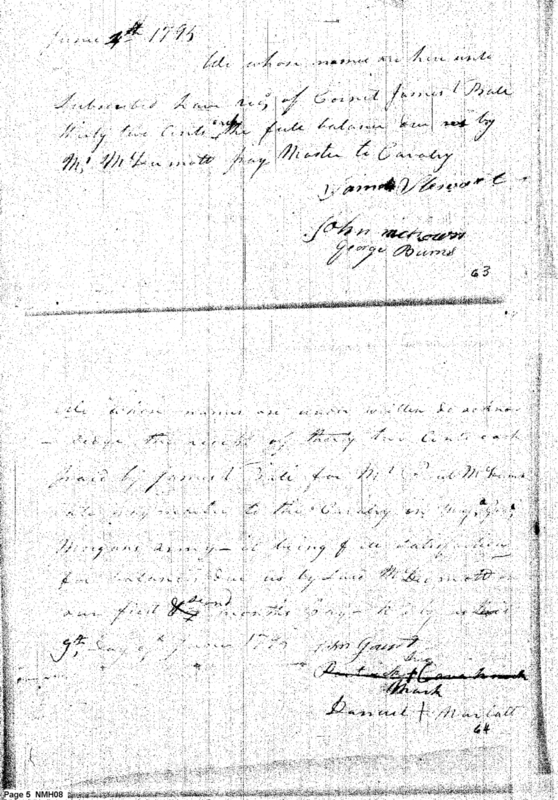 June 4th 1795
We whose names are here unto
Subscribed have recd of Cornet James Beale
thirty two Cents each the full balance due us by
Mr McDermott pay Master to Cavalry
James Stewart
John mckown
George Burns
63
We whose names are under written do acknow
- ledge the receipt of thirty two Cents each
paid by James Beale for Mr Paul McDerm
pay master to the Cavalry in
Morgans army - it being full satisfaction
for balance due us by Said McDermott on
our first & second months pay
9th Day of June 1795
John Gaunt
his
Mark
Daniel + Marlatt
64
Page 5 NMH08